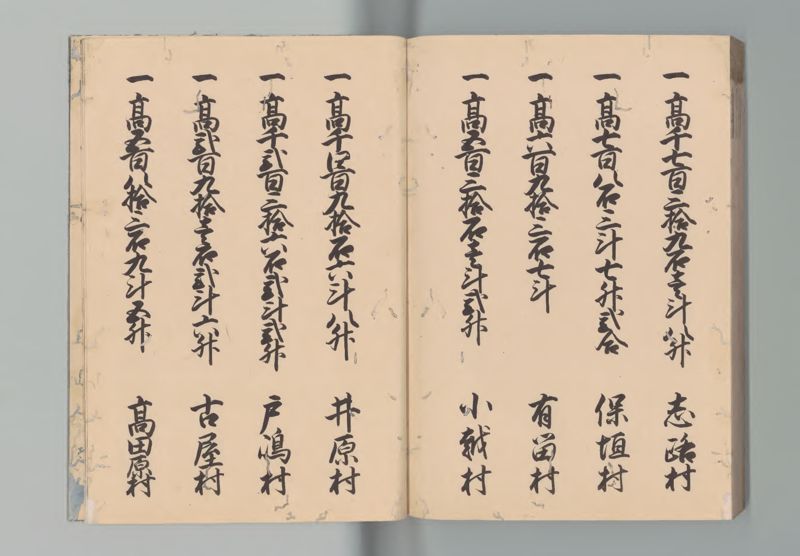 一 高千七百三拾九石壱斗八升 志路村
一 高七百八石三斗七升弐合 保垣村
一 高六百九拾三石七斗 有留村
一 高五百三拾石壱斗弐升 小越村
一 高千四百九拾石六斗八升 井原村
一 高千弐百三拾六石弐斗弐升 戸嶋村
一 高弐百九拾壱石弐斗六升 古屋村
一 高五百八拾三石九斗五升 高田原村